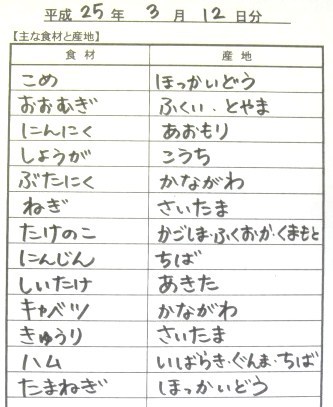 平成 25 年 3 月 12 日分
【主な食材と産地】
食材 産地
こめ ほっかいどう
おおむぎ ふくい・とやま
にんにく あおもり
しょうが こうち
ぶたにく かながわ
ねぎ さいたま
たけのこ かごしま・ふくおか・くまもと
にんじん ちば
しいたけ あきた
キャベツ かながわ
きゅうり さいたま
ハム いばらき・ぐんま・ちば
たまねぎ ほっかいどう